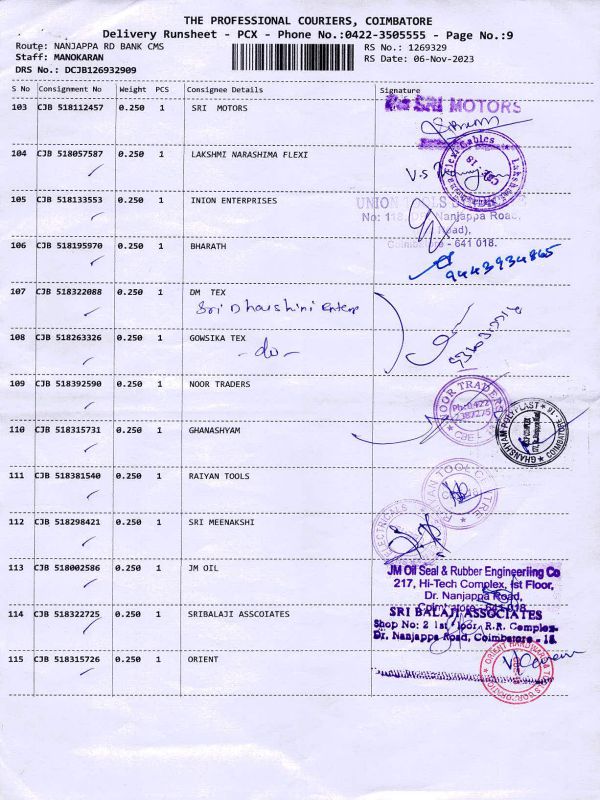 THE PROFESSIONAL COURIERS, COIMBATORE
Delivery Runsheet - PCX - Phone No.:0422-3505555 - Page No.:9
Route: NANJAPPA RD BANK CMS
RS No.: 1269329
Staff: MANOKARAN
RS Date: 06-Nov-2023
DRS No.: DCJB126932909
S No Consignment No Weight PCS Consignee Details Signature
103 CJB 518112457 0.250 1 SRI MOTORS
SRI MOTORS
104 CJB 518057587 0.250 1 LAKSHMI NARASHIMA FLEXI
V.S
105 CJB 518133553 0.250 1 INION ENTERPRISES
UNION TOOLS
No: 118, Dr. Nanjappa Road,
Road),
Coimbatore - 641 018.
106 CJB 518195970 0.250 1 BHARATH
9443934865
107 CJB 518322088 0.250 1 DM TEX
Sri Dharshini Enterp
108 CJB 518263326 0.250 1 GOWSIKA TEX
- do -
109 CJB 518392590 0.250 1 NOOR TRADERS
NOOR TRADERS
Ph:0422
2387275
CBE
110 CJB 518315731 0.250 1 GHANASHYAM
GHANSHYAM POLYPLAST
COIMBATORE
111 CJB 518381540 0.250 1 RAIYAN TOOLS
RAIYAN TOOL
112 CJB 518298421 0.250 1 SRI MEENAKSHI
ELECTRICALS
113 CJB 518002586 0.250 1 JM OIL
JM Oil Seal & Rubber Engineeriing Co
217, Hi-Tech Complex, Ist Floor,
Dr. Nanjappa Road,
Coimbatore - 641 018
114 CJB 518322725 0.250 1 SRIBALAJI ASSCOIATES
SRI BALAJI ASSOCIATES
Shop No: 2 1st Floor, R.R. Complex
Dr. Nanjappa Road, Coimbatore - 18.
115 CJB 518315726 0.250 1 ORIENT
ORIENT HARDWARE & TOOLS CORPORATION